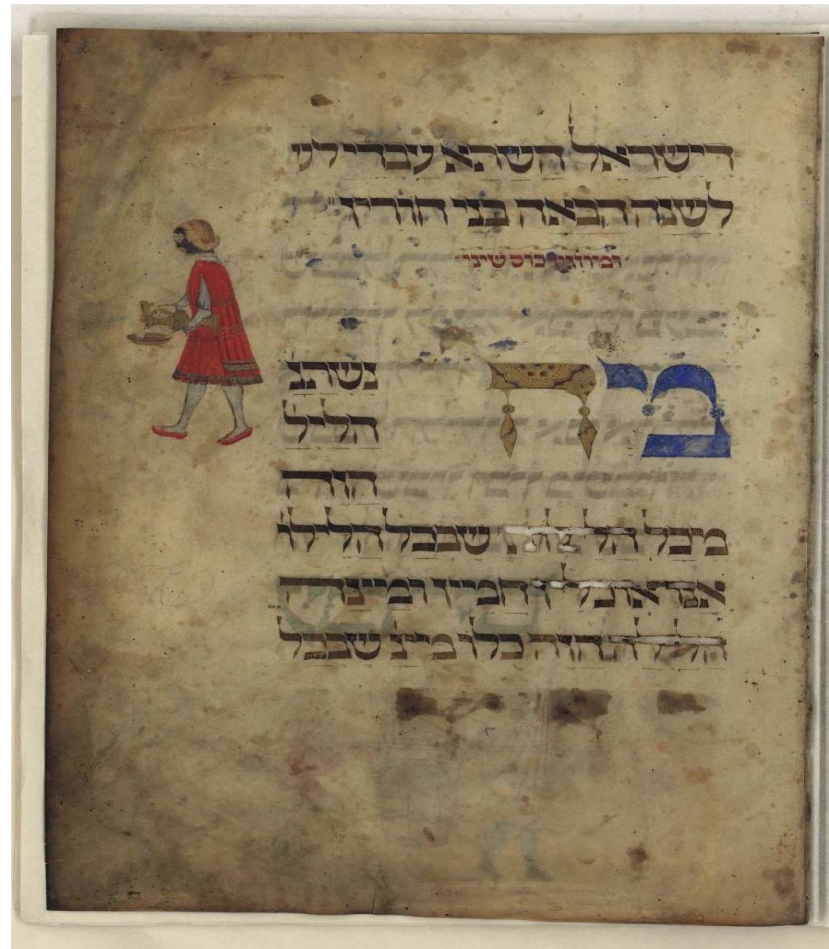 דישראל השתא עבדי לש
לשנה הבאה בני חורין
ומוזגין כוס שיני
מה נשתנ
הליל
הזה
מכל הלילות שבכל הלילו
אנו אוכלין חמץ ומצה
הלילה הזה כלו מצ שבכל